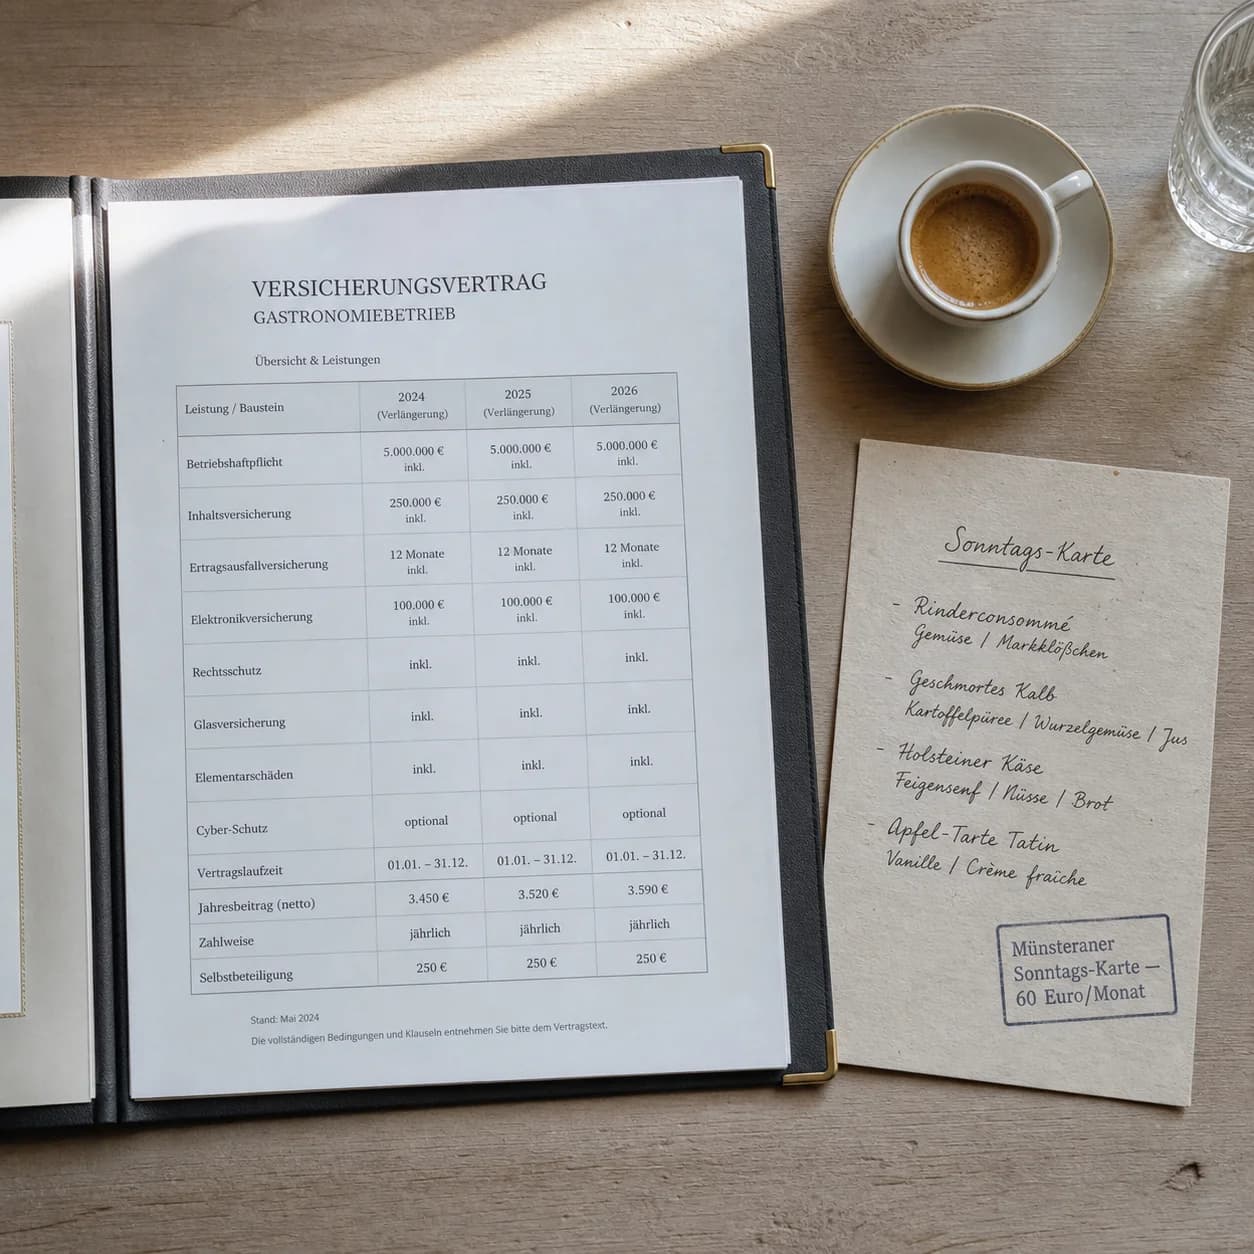 VERSICHERUNGSVERTRAG
GASTRONOMIEBETRIEB
Übersicht & Leistungen
Leistung / Baustein 2024 (Verlängerung) 2025 (Verlängerung) 2026 (Verlängerung)
Betriebshaftpflicht 5.000.000 € inkl. 5.000.000 € inkl. 5.000.000 € inkl.
Inhaltsversicherung 250.000 € inkl. 250.000 € inkl. 250.000 € inkl.
Ertragsausfallversicherung 12 Monate inkl. 12 Monate inkl. 12 Monate inkl.
Elektronikversicherung 100.000 € inkl. 100.000 € inkl. 100.000 € inkl.
Rechtsschutz inkl. inkl. inkl.
Glasversicherung inkl. inkl. inkl.
Elementarschäden inkl. inkl. inkl.
Cyber-Schutz optional optional optional
Vertragslaufzeit 01.01. – 31.12. 01.01. – 31.12. 01.01. – 31.12.
Jahresbeitrag (netto) 3.450 € 3.520 € 3.590 €
Zahlweise jährlich jährlich jährlich
Selbstbeteiligung 250 € 250 € 250 €
Stand: Mai 2024
Die vollständigen Bedingungen und Klauseln entnehmen Sie bitte dem Vertragstext.
Sonntags-Karte
- Rinderconsommé
Gemüse / Markklößchen
- Geschmortes Kalb
Kartoffelpüree / Wurzelgemüse / Jus
- Holsteiner Käse
Feigensenf / Nüsse / Brot
- Apfel-Tarte Tatin
Vanille / Crème fraîche
Münsteraner
Sonntags-Karte —
60 Euro/Monat